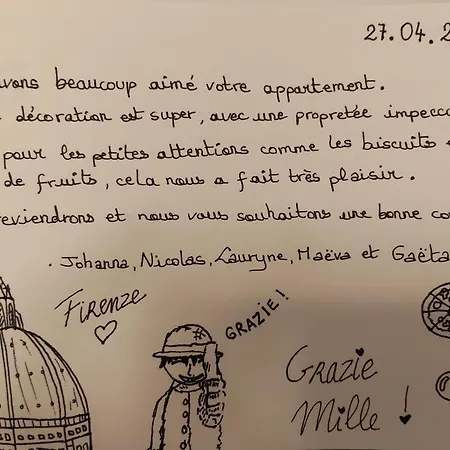 27.04.2
vons beaucoup aimé votre appartement.
décoration est super, avec une propretée impecca
pour les petites attentions comme les biscuits
de fruits, cela nous a fait très plaisir.
reviendrons et nous vous souhaitons une bonne co
. Johanna, Nicolas, Lauryne, Maëva et Gaëta
FIRENZE
GRAZIE!
GRAZIE
Mille !